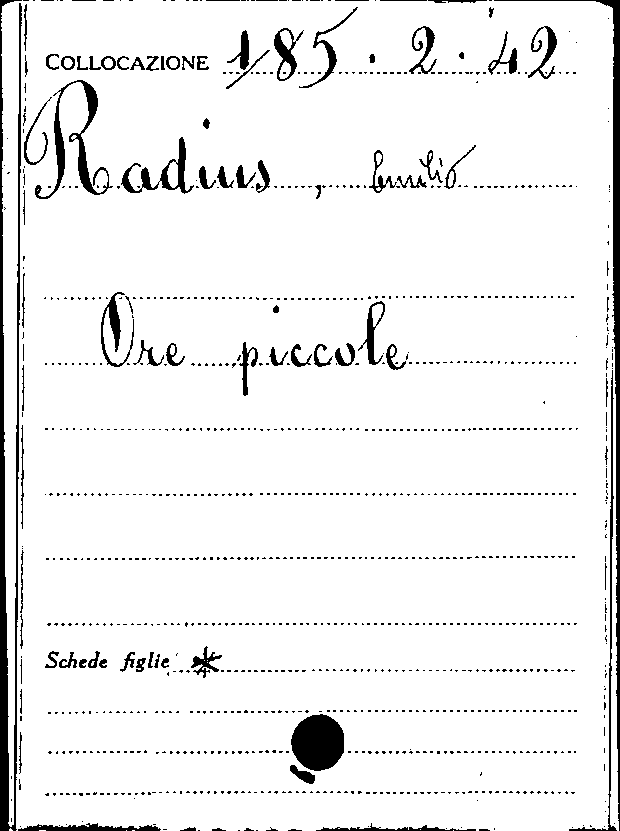 COLLOCAZIONE 185 . 2 . 42
Radius, Emilio
Ore piccole
Schede figlie *